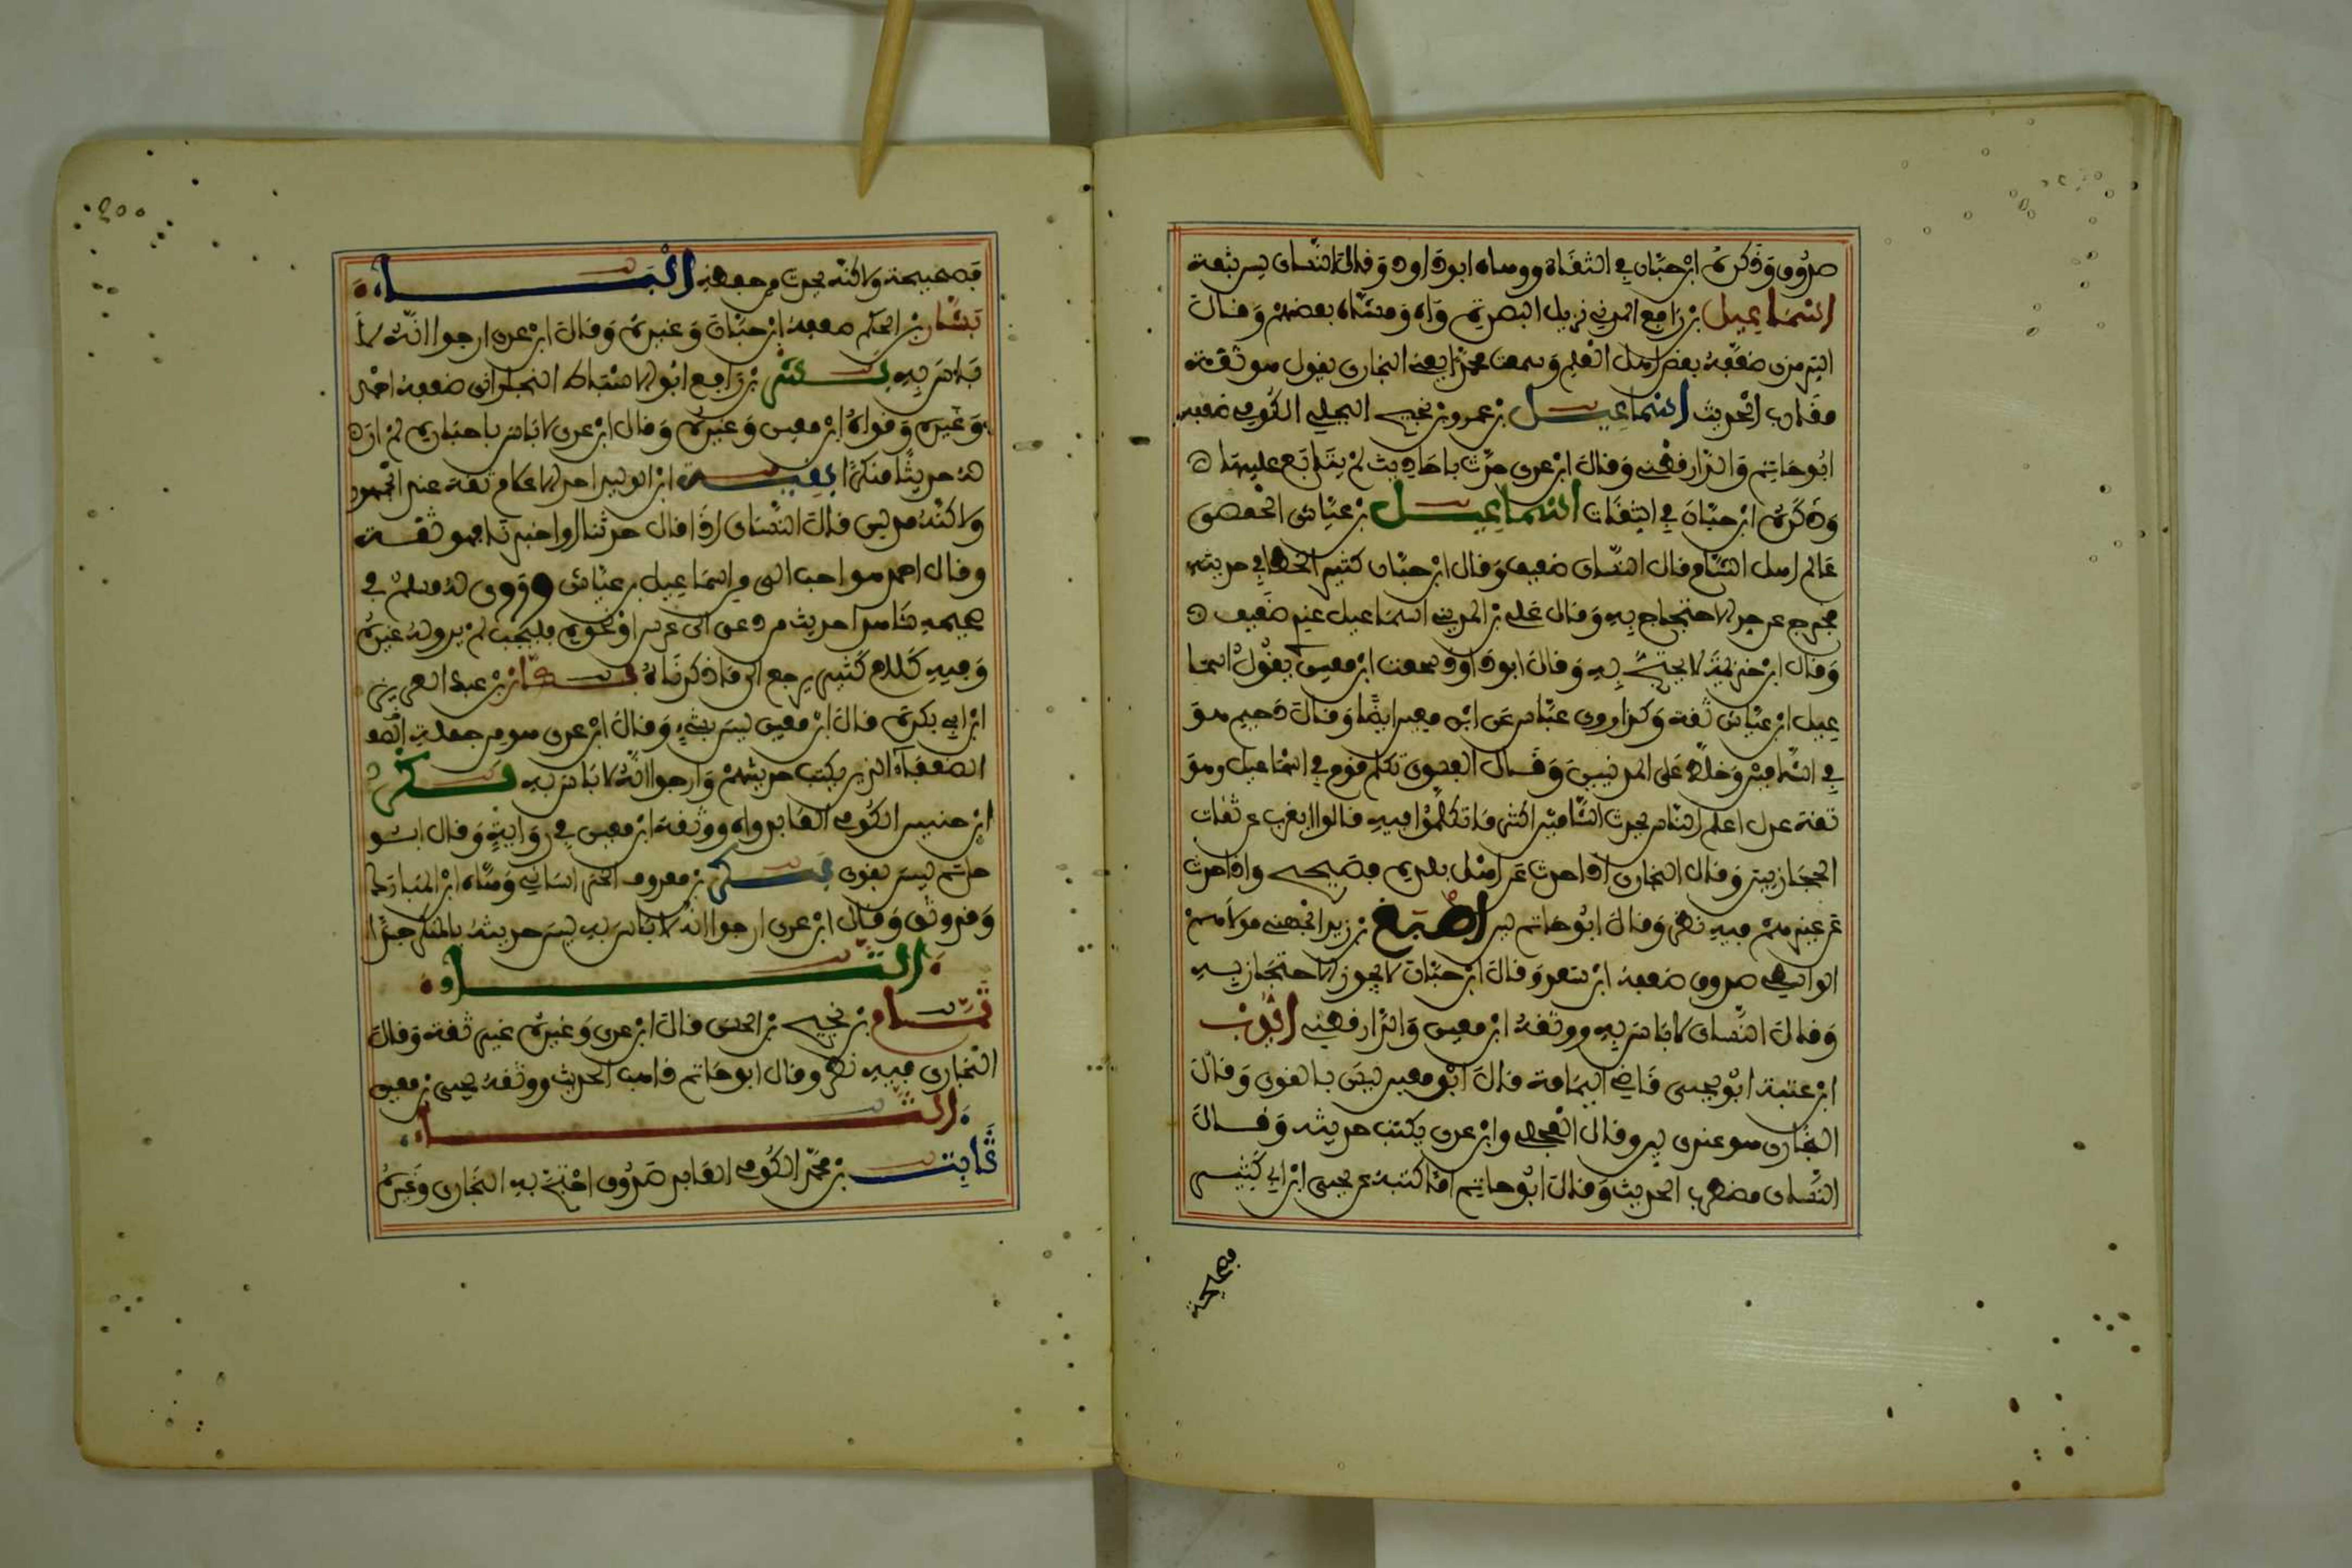 صدوق وذكره ابن حبان في الثقاة ووهاه ابو داود وقال النسائ ليس بثقة
اسماعيل بن رافع المدني نزيل البصرة واه ومشاه بعضهم وقال
الترمذي ضعفه بعض اهل العلم وسمعت محمدا يعني البخاري يقول هو ثقة
مقارب الحديث اسماعيل بن عمرو بن نجيح البجلي الكوفي ضعفه
ابو حاتم والدارقطني وقال ابن عدي حدث باحاديث لم يتابع عليها
وذكره ابن حبان في الثقات اسماعيل بن عياش الحمصي
عالم اهل الشام قال النسائ ضعيف وقال ابن حبان كثير الخطا في حديثه
فخرج عن حد الاحتجاج به وقال علي بن المديني اسماعيل عندي ضعيف
وقال ابن خزيمة لا يحتج به وقال ابو داود سمعت ابن معين يقول اسما
عيل ابن عياش ثقة وكذا روى عباس عن ابن معين ايضا وقال دحيم هو
في الشاميين وخلط على المدنيين وقال الفسوي تكلم قوم في اسماعيل وهو
ثقة عدل اعلم الناس بحديث الشاميين اكثر ما تكلموا فيه قالوا يغرب عن ثقات
الحجازيين وقال البخاري اذا حدث عن اهل بلده فصحيح واذا حدث
عن غيرهم ففيه نظر وقال ابو حاتم لين اصبغ بن زيد الجهني مولاهم
الواسطي صدوق ضعفه ابن سعد وقال ابن حبان لا يجوز الاحتجاز به
وقال النسائ لا باس به ووثقه ابن معين والدارقطني ايوب
ابن عتبة ابو يحيى قاضي اليمامة قال ابن معين ليس بالقوي وقال
البخاري هو عندي لين وقال العجلي وابن عدي يكتب حديثه وقال
النسائ مضطرب الحديث وقال ابو حاتم اما كتبه عن يحيى ابن ابي كثير
فصحيحة
فصحيحة ولاكنه يحدث من حفظه الباء
بشار بن الحكم ضعفه ابن حبان وغيره وقال ابن عدي ارجوا انه لا
باس به بشر بن رافع ابو الاسباط النجراني ضعفه احمد
وغيره وقواه ابن معين وغيره وقال ابن عدي لا باس باخباره لم ار
له حديثا منكرا بقية ابن الوليد احد الاعلام ثقة عند الجمهور
ولاكنه مدلس قال النسائ اذا قال حدثنا او اخبرنا فهو ثقة
وقال احمد هو احب الي من اسماعيل بن عياش وروى له مسلم في
صحيحه شاهدا حديث من دعي الى عرس او نحوه فليجب لم يرو له غيره
وفيه كلام كثير يرجع الى ما ذكرناه بكار بن عبد العزيز
ابن ابي بكرة قال ابن معين ليس بشيء وقال ابن عدي هو من جملة الضعفاء
الضعفاء الذين يكتب حديثهم وارجوا انه لا باس به بكر
ابن خنيس الكوفي العابد واه ووثقه ابن معين في رواية وقال ابو
حاتم ليس بقوي بكير بن معروف الخراساني وهاه ابن المبارك
وقد وثق وقال ابن عدي ارجوا انه لا باس به ليس حديثه بالمنكر جدا
التاء
تمام بن نجيح بن الحسن قال ابن عدي وغيره غير ثقة وقال
البخاري فيه نظر وقال ابو حاتم ذاهب الحديث ووثقه يحيى بن معين
الثاء
ثابت بن محمد الكوفي العابد صدوق احتج به البخاري وغيره